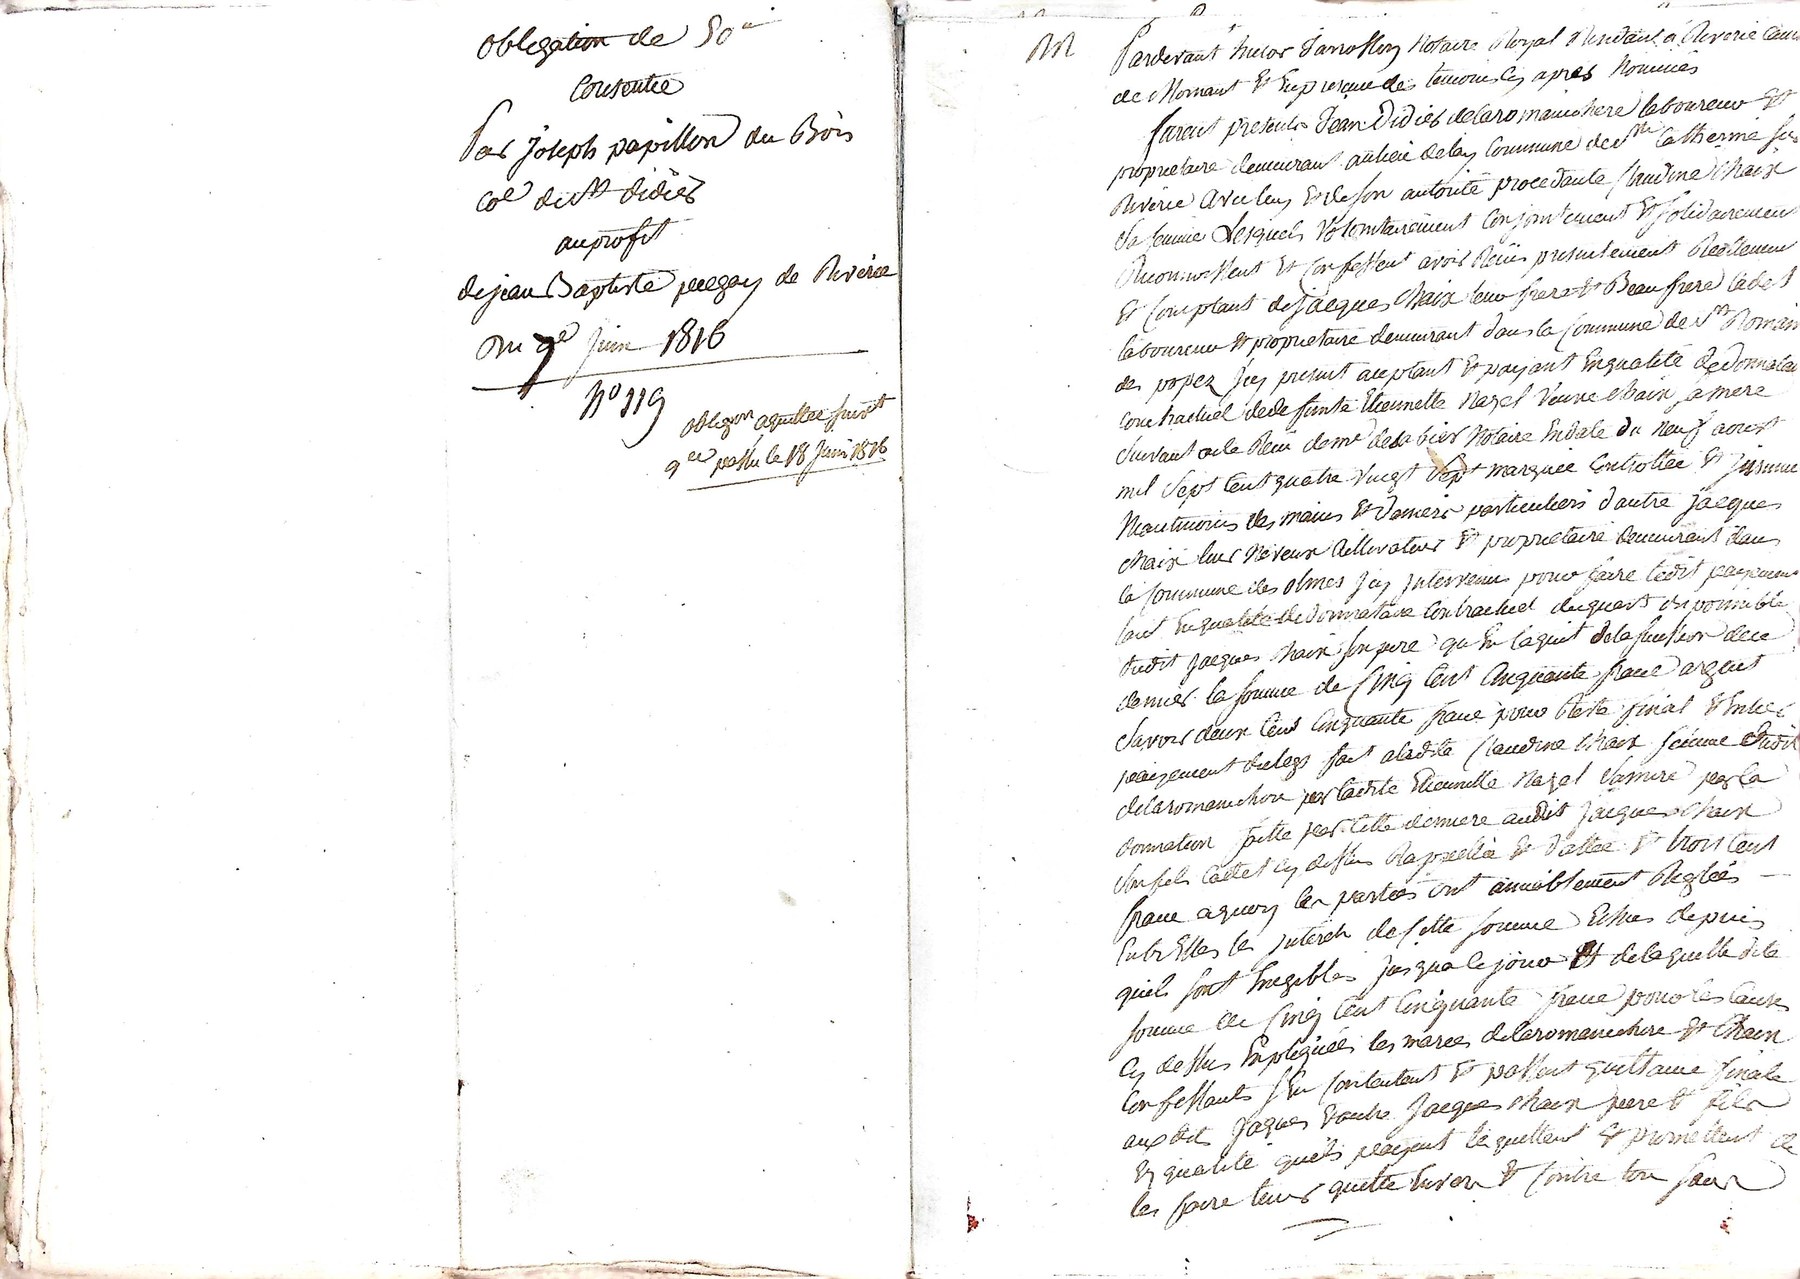 obligation de 50
Consentie
Par Joseph papillon du Bois
coe de st didier
au profit
de jean Baptiste peegay de Riverie
Du 9e Juin 1816
No 119
obligon aquittee suivt
qce passu le 18 Juin 1816
Pardevant Notaire Royal Residant a Riverie canton
de Mornant Et En presence des temoins cy apres Nommés
furent presents Jean Didier delaromanichere laboureur Et
proprietaire demeurant au lieu de commune de Ste Catherine sur
Riverie avec luy Et de son autorité procedante Claudine Chaix
sa femme Lesquels volontairement conjointement Et solidairement
Reconnoissent Et Confessent avoir Reçu presentement Reellement
Et Comptant de Jacques Chaix leur frere Et Beau frere cadet
laboureur Et proprietaire demeurant dans la Commune de St Romain
de popez Jcy present aceptant Et payant En qualité de donnataire
contractuel de defunte Etiennette Nazel veuve Chaix sa mere
suivant acte Reçu de me Notaire En date du neuf aoust
mil sept cent quatre vingt sept marquée Controllée Et Jnsinuée
Neantmoins des mains Et deniers particuliers d'autre Jacques
Chaix leur Neveux Cultivateur Et proprietaire demeurant dans
la Commune des olmes Jcy Jntervenu pour faire ledit payement
tant En qualité de donnataire Contractuel du quart disponnible
dudit Jacques Chaix son pere qu'En l'aquit de la de ce
dernier la somme de Cinq Cent Cinquante franc argent
Savoir deux Cent Cinquante franc pour Reste final Et Entier
payement du legs fait a ladite Claudine Chaix femme dudit
delaromanichere par ladite Etiennette Nazel sa mere par la
donnation faitte par Cette derniere audit Jacques Chaix
son fils Cadet cy dessus Rapellée Et dattée Et trois Cent
franc a quoy les parties ont amiablement Reglées
Entr'Elles les Jnterets de Cette somme Echus depuis
quils sont Exigibles Jusqua ce jour Et de laquelle dite
somme de Cinq Cent Cinquante franc pour les Causes
Cy dessus Expliquées les mariés delaromanichere Et Chaix
Confessants s'En Contentent Et passent quittance finale
aux dits Jaques Et autre Jacques Chaix pere Et fils
Es qualité quils payent les quittent Et promettent de
les faire tenir quitte Envers Et Contre tous sauf